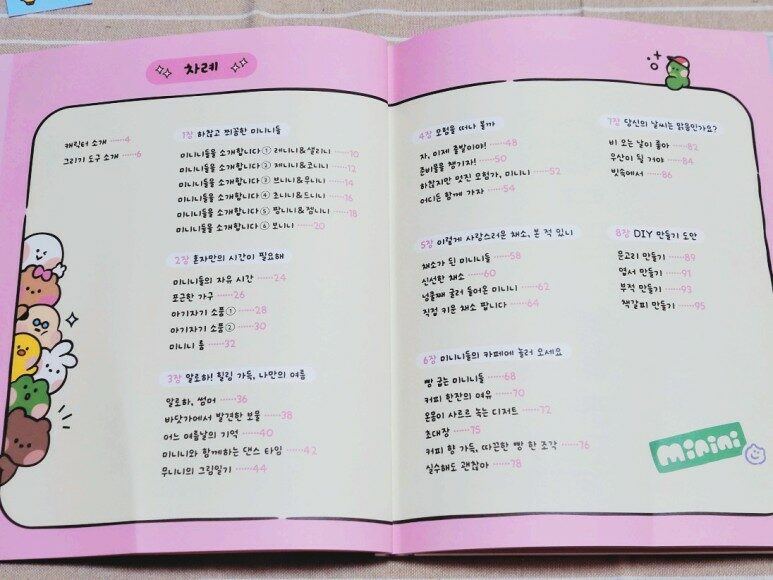 차례
캐릭터 소개 ······ 4
그리기 도구 소개 ······ 6
1장 하찮고 쪼꼼한 미니니들
미니니들을 소개합니다① 레니니&샐리니 ······ 10
미니니들을 소개합니다② 제니니&코니니 ······ 12
미니니들을 소개합니다③ 브니니&무니니 ······ 14
미니니들을 소개합니다④ 초니니&드니니 ······ 16
미니니들을 소개합니다⑤ 팡니니&잼니니 ······ 18
미니니들을 소개합니다⑥ 보니니 ······ 20
2장 혼자만의 시간이 필요해
미니니들의 자유 시간 ······ 24
포근한 가구 ······ 26
아기자기 소품① ······ 28
아기자기 소품② ······ 30
미니니 룸 ······ 32
3장 알로하! 힐링 가득, 나만의 여름
알로하, 썸머 ······ 36
바닷가에서 발견한 보물 ······ 38
어느 여름날의 기억 ······ 40
미니니와 함께하는 댄스 타임 ······ 42
무니니의 그림일기 ······ 44
4장 모험을 떠나 볼까
자, 이제 출발이야! ······ 48
준비물을 챙기자! ······ 50
하찮지만 멋진 모험가, 미니니 ······ 52
어디든 함께 가자 ······ 54
5장 이렇게 사랑스러운 채소, 본 적 있니
채소가 된 미니니들 ······ 58
신선한 채소 ······ 60
넝쿨째 굴러 들어온 미니니 ······ 62
직접 키운 채소 팝니다 ······ 64
6장 미니니들의 카페에 놀러 오세요
빵 굽는 미니니들 ······ 68
커피 한잔의 여유 ······ 70
온몸이 사르르 녹는 디저트 ······ 72
초대장 ······ 75
커피 향 가득, 따끈한 빵 한 조각 ······ 76
실수해도 괜찮아 ······ 78
7장 당신의 날씨는 맑음인가요?
비 오는 날이 좋아 ······ 82
우산이 될 거야 ······ 84
빗속에서 ······ 86
8장 DIY 만들기 도안
문고리 만들기 ······ 89
엽서 만들기 ······ 91
부적 만들기 ······ 93
책갈피 만들기 ······ 95
minini